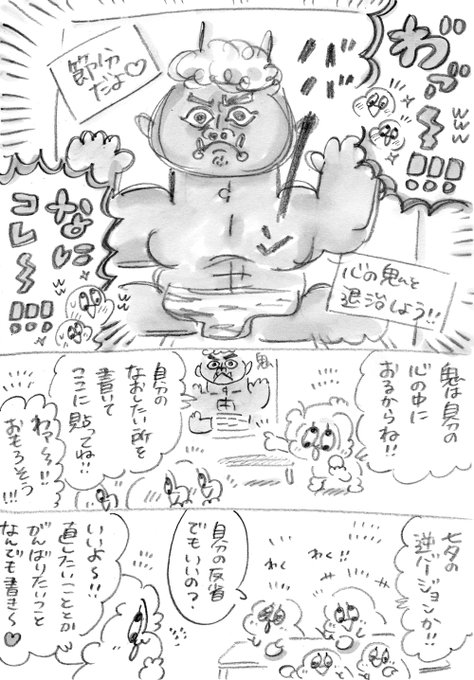 わァ〜www!!!
節分
だよ♡
ババ
なに
コレ〜!!!
ww
心の鬼を
退治しよう!!
鬼は自分の
心の中に
おるからね!!
鬼
自分の
なおしたい所を
書いて
ここに貼ってね!!
わァ〜!!
おもろそう
!!!
七夕の
逆バージョンか!!
わく!!
わく
自分の反省
でもいいの?
いいよ〜!!
直したいこととか
がんばりたいこと
なんでも書き〜♡